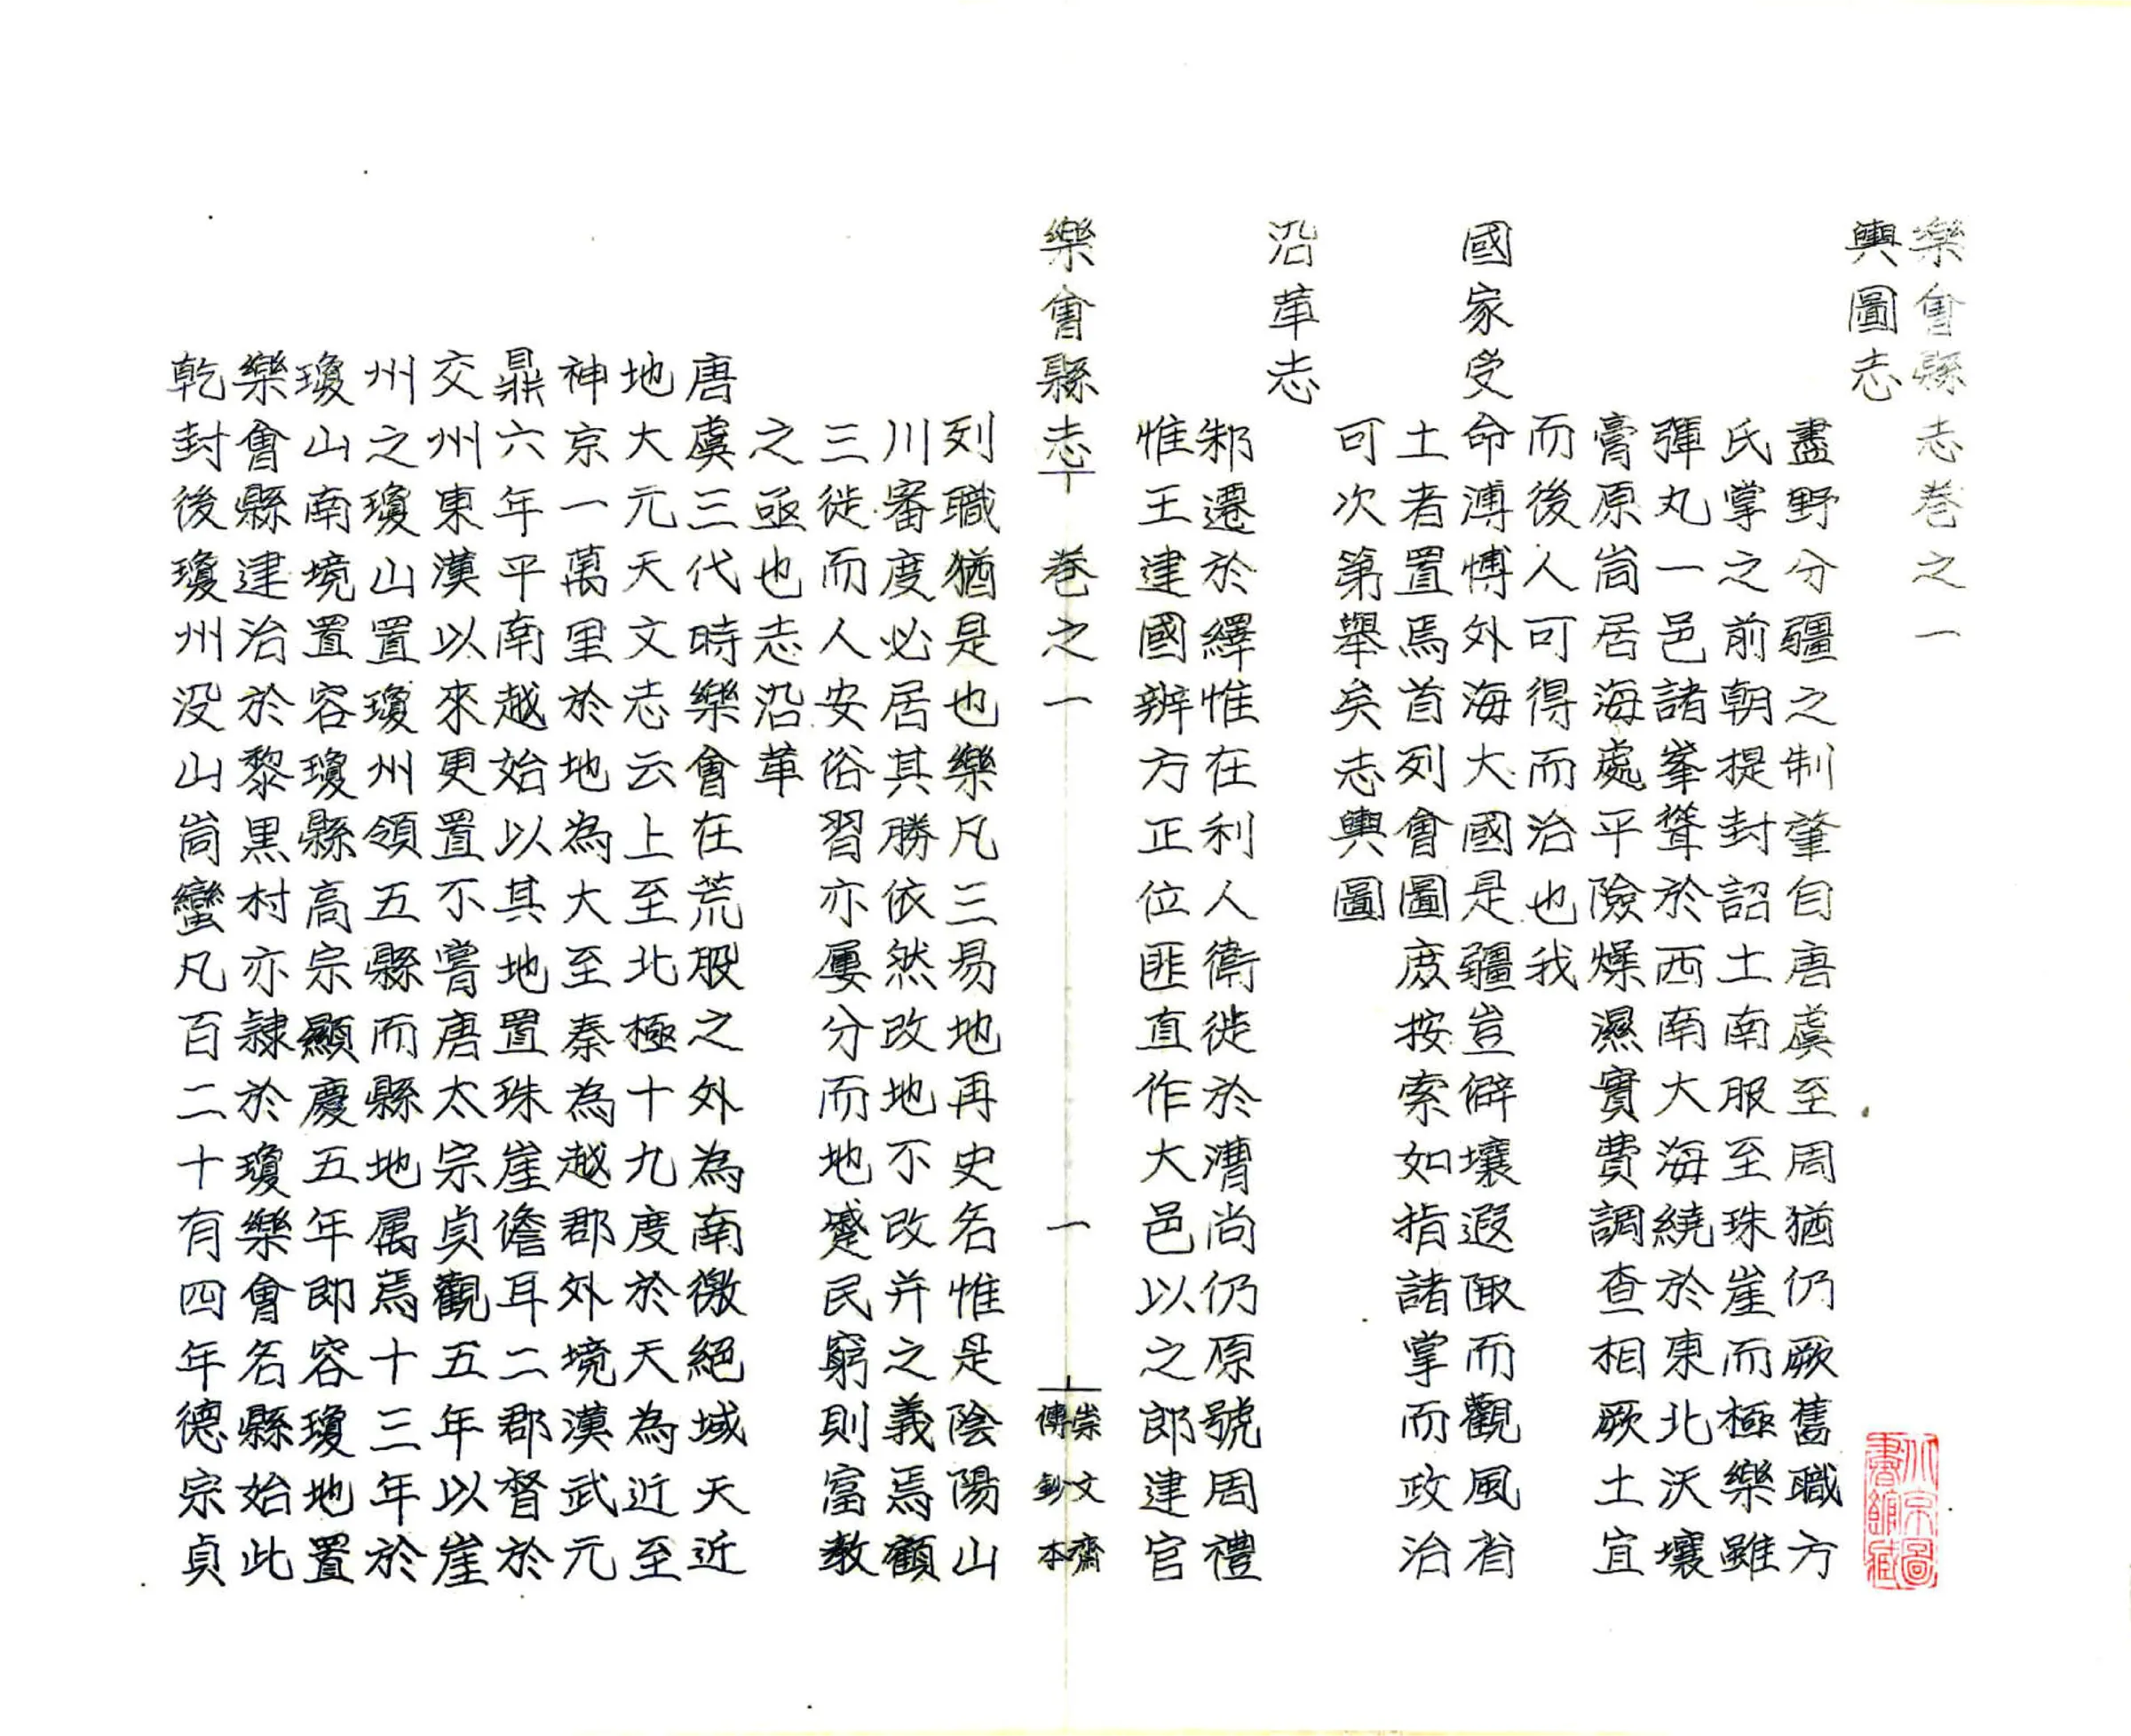 樂會縣志卷之一
輿圖志
盡野分疆之制肇自唐虞至周猶仍厥舊職方
氏掌之前朝提封詔土南服至珠崖而極樂雖
彈丸一邑諸峯聳於西南大海繞於東北沃壤
膏原峝居海處平險燥濕實費調查相厥土宜
而後人可得而治也我
國家受命溥博外海大國是疆豈僻壤遐陬而觀風省
土者置焉首列會圖庻按索如指諸掌而政治
可次第舉矣志輿圖
沿革志
邾遷於繹惟在利人衛徙於漕尚仍原號周禮
惟王建國辨方正位匪直作大邑以之郎建官
樂會縣志 卷之一 一 崇文齋傳鈔本
列職猶是也樂凡三易地再史名惟是陰陽山
川審度必居其勝依然改地不改并之義焉顧
三徙而人安俗習亦屢分而地蹙民窮則富教
之亟也志沿革
唐虞三代時樂會在荒服之外為南徼絕域天近
地大元天文志云上至北極十九度於天為近至
神京一萬里於地為大至秦為越郡外境漢武元
鼎六年平南越始以其地置珠崖儋耳二郡督於
交州東漢以來更置不嘗唐太宗貞觀五年以崖
州之瓊山置瓊州領五縣而縣地属焉十三年於
瓊山南境置容瓊縣高宗顯慶五年即容瓊地置
樂會縣建治於黎黑村亦隷於瓊樂會名縣始此
乾封後瓊州没山峝蠻凡百二十有四年德宗貞
北京圖書館藏